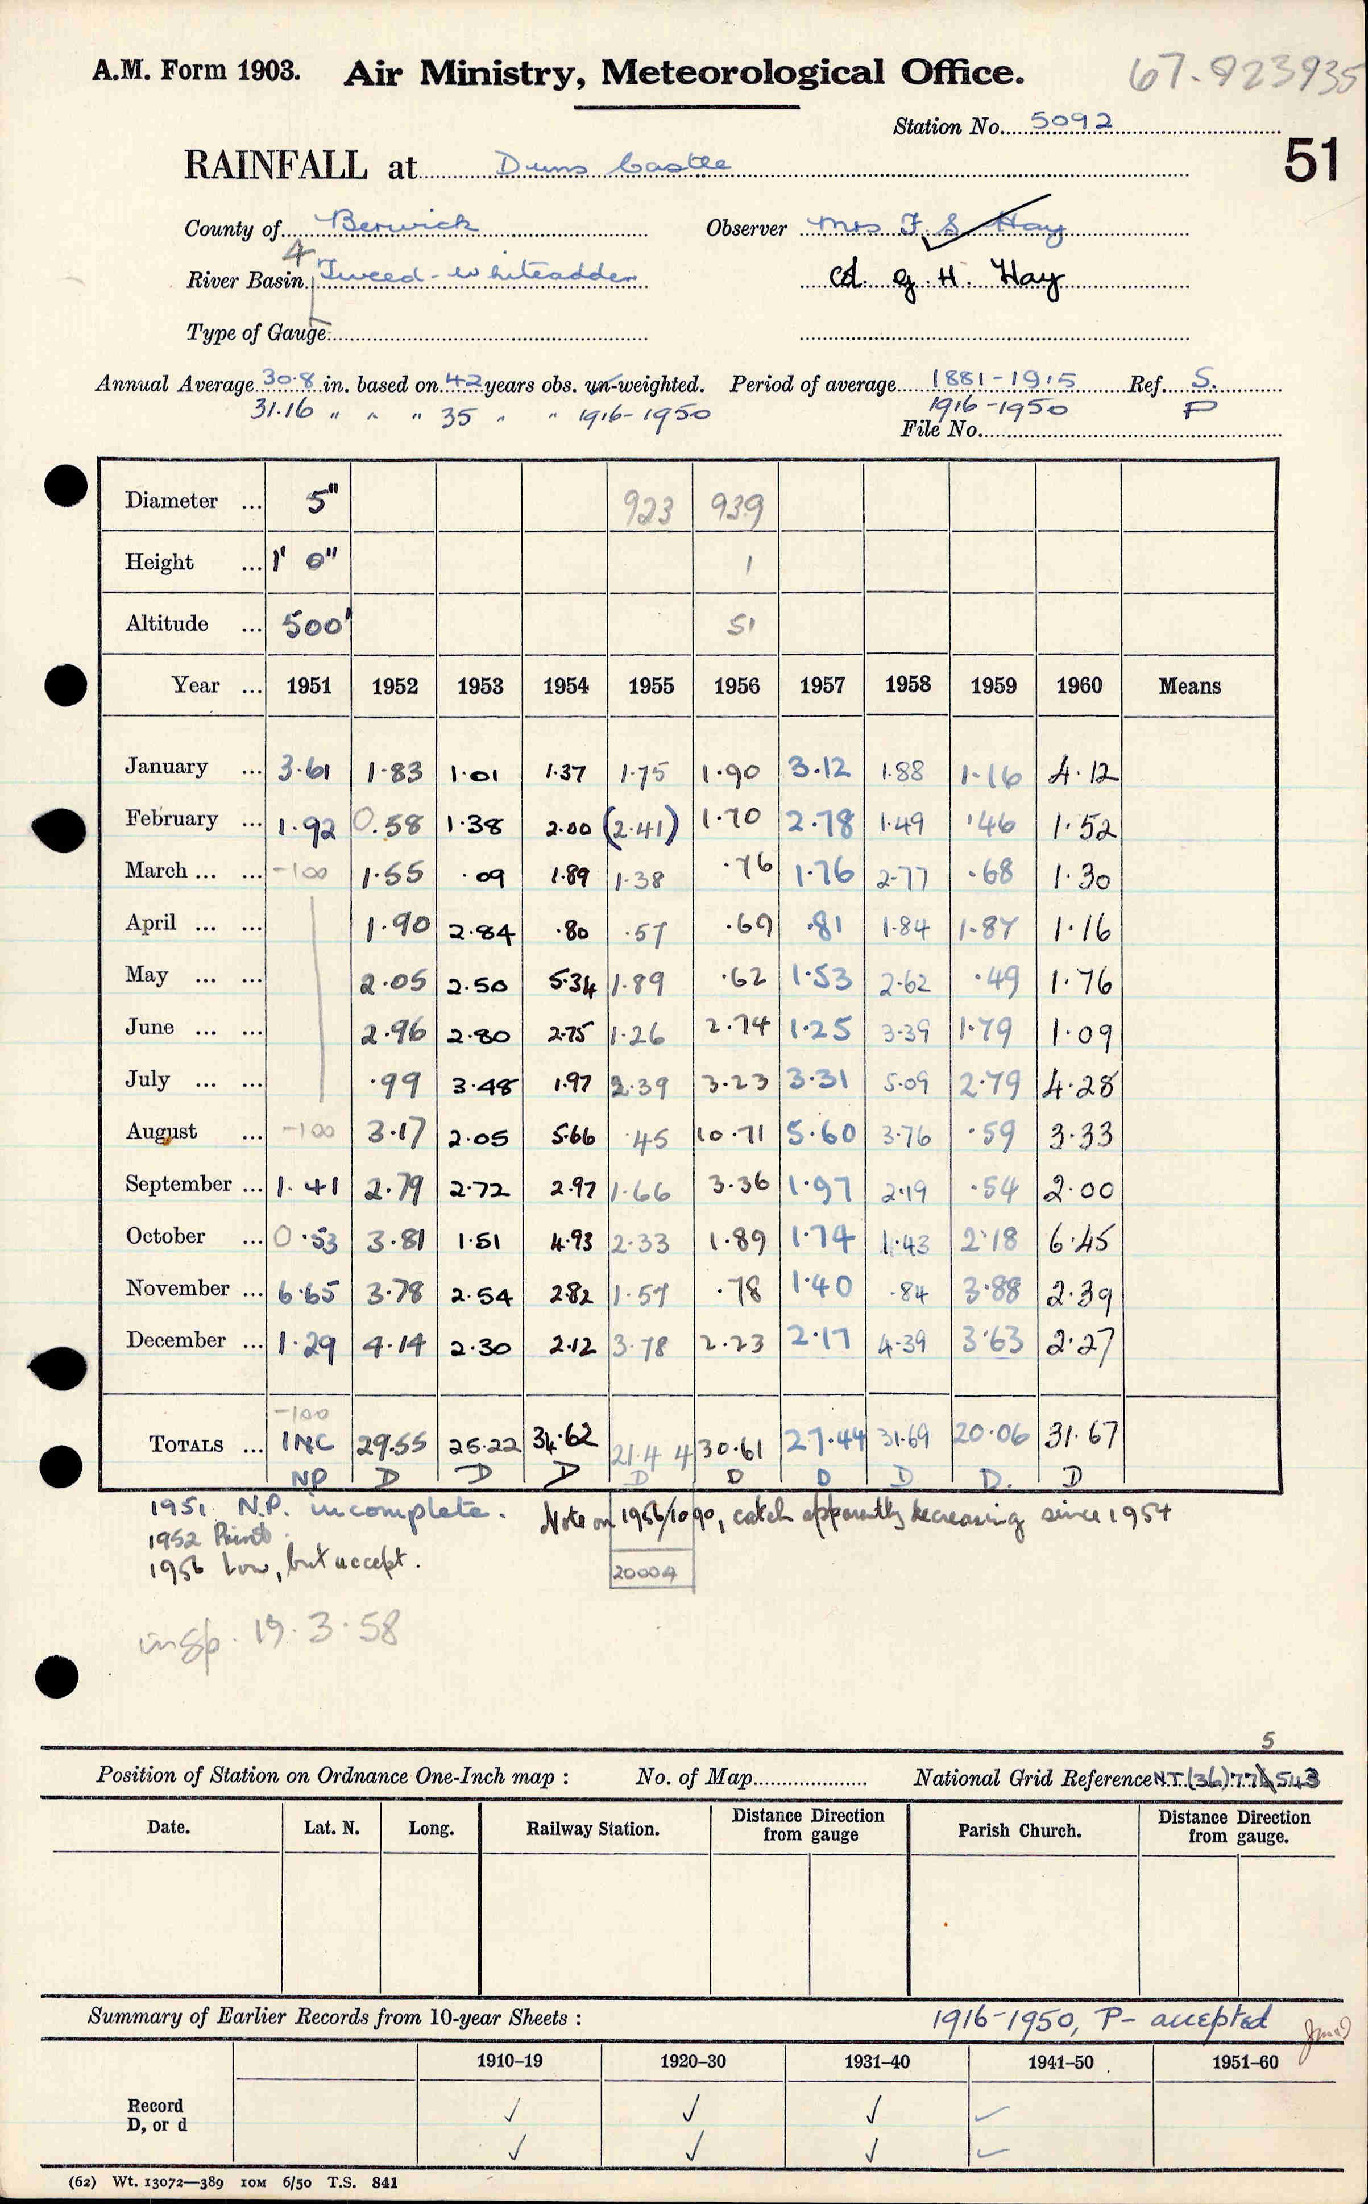 A.M. Form 1903. Air Ministry, Meteorological Office. 67.923935
Station No. 5092
51
RAINFALL at Duns Castle
County of Berwick Observer Mrs F. S. Hay
4
River Basin Tweed-Whiteadder Col. G. H. Hay
Type of Gauge
Annual Average 30.8 in. based on 42 years obs. un-weighted. Period of average 1881-1915 Ref. S.
31.16 " " " 35 " " 1916-1950 1916-1950 P
File No.
Diameter ... 5" 923 939
Height ... 1' 0" 1
Altitude ... 500' 51
Year ... 1951 1952 1953 1954 1955 1956 1957 1958 1959 1960 Means
January ... 3.61 1.83 1.01 1.37 1.75 1.90 3.12 1.88 1.16 4.12
February ... 1.92 0.58 1.38 2.00 (2.41) 1.70 2.78 1.49 .46 1.52
March ... ... -100 1.55 .09 1.89 1.38 .76 1.76 2.77 .68 1.30
April ... ... 1.90 2.84 .80 .57 .69 .81 1.84 1.87 1.16
May ... ... 2.05 2.50 5.34 1.89 .62 1.53 2.62 .49 1.76
June ... ... 2.96 2.80 2.75 1.26 2.74 1.25 3.39 1.79 1.09
July ... ... .99 3.48 1.97 2.39 3.23 3.31 5.09 2.79 4.28
August ... -100 3.17 2.05 5.66 .45 10.71 5.60 3.76 .59 3.33
September ... 1.41 2.79 2.72 2.97 1.66 3.36 1.97 2.19 .54 2.00
October ... 0.53 3.81 1.51 4.93 2.33 1.89 1.74 1.43 2.18 6.45
November ... 6.65 3.78 2.54 2.82 1.57 .78 1.40 .84 3.88 2.39
December ... 1.29 4.14 2.30 2.12 3.78 2.23 2.17 4.39 3.63 2.27
-100
TOTALS ... INC 29.55 25.22 34.62 21.44 30.61 27.44 31.69 20.06 31.67
NP D D D D D D D D. D
1951. N.P. incomplete. Note on 1956/1090, catch apparently decreasing since 1954
1952 Print.
1956 Low, but accept. 20004
insp. 19.3.58
5
Position of Station on Ordnance One-Inch map : No. of Map National Grid Reference NT.(36) 776 543
Date. Lat. N. Long. Railway Station. Distance Direction from gauge Parish Church. Distance Direction from gauge.
Summary of Earlier Records from 10-year Sheets : 1916-1950, P- accepted
1910–19 1920–30 1931–40 1941–50 1951–60
Record ✓ ✓ ✓ ✓
D, or d ✓ ✓ ✓ ✓
(62) Wt. 13072—389 10M 6/50 T.S. 841